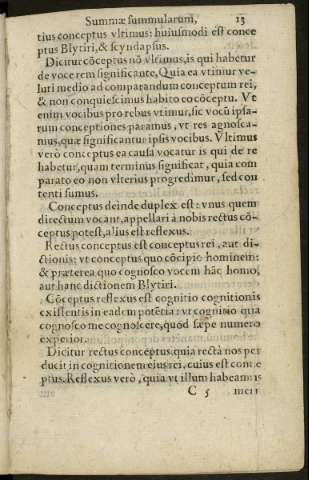 Summæ summularum, 13
tius conceptus vltimus: huiusmodi est conce
ptus Blytiri, & scyndapsus.
Dicitur cōceptus nō vltimus, is qui habetur
de voce rem significante. Quia ea vtimur ve-
luti medio ad comparandum conceptum rei,
& non conquiescimus habito eo cōceptu. Vt
enim vocibus pro rebus vtimur, sic vocū ipsa-
rum conceptiones paramus, vt res agnosca-
mus, quæ significantur ipsis vocibus. Vltimus
verò conceptus ea causa vocatur is qui de re
habetur, quam terminus significat, quia com
parato eo non vlterius progredimur, sed con
tenti sumus.
Conceptus deinde duplex est: vnus quem
directum vocant, appellari à nobis rectus cō-
ceptus potest, alius est reflexus.
Rectus conceptus est conceptus rei, aut di-
ctionis: vt conceptus quo cōcipio hominem:
& præterea quo cognosco vocem hāc homo,
aut hanc dictionem Blytiri.
Cōceptus reflexus est cognitio cognitionis
existentis in eadem potētia: vt cognitio qua
cognosco me cognoscere, quòd sæpe numero
experior.
Dicitur rectus conceptus, quia rectà nos per
ducit in cognitionem eius rei, cuius est conce
ptus. Reflexus verò, quia vt illum habeamus
C 5